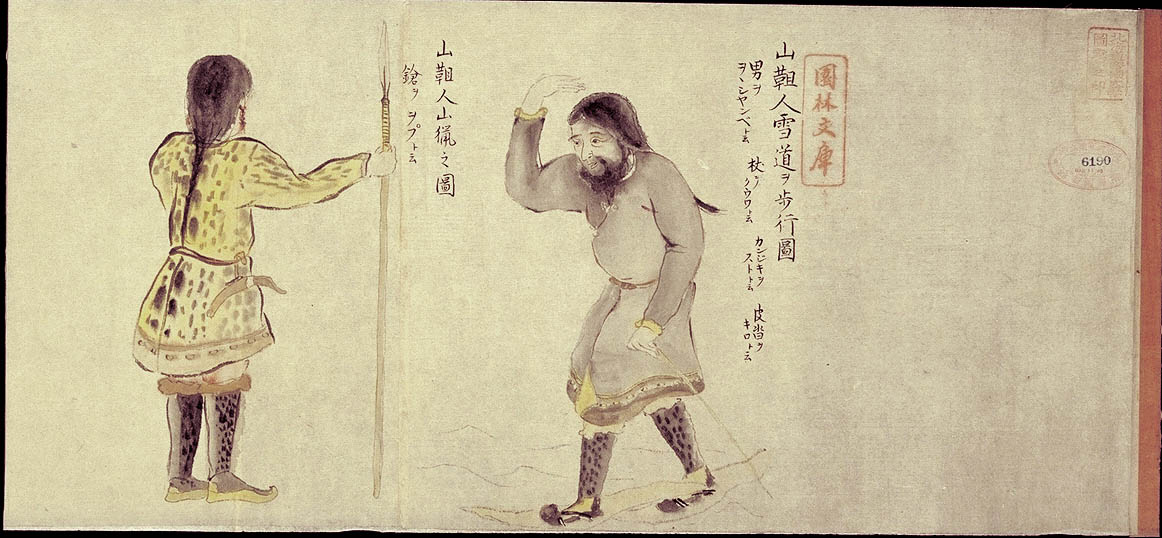 6190
園林文庫
山靼人雪道ヲ歩行圖
男ヲ
ヲヽシヤンベト云
杖ヲ
クウワト云
カンジキヲ
ストト云
皮沓ヲ
キロト云
山靼人山猟之圖
鎗ヲ
ヲプト云